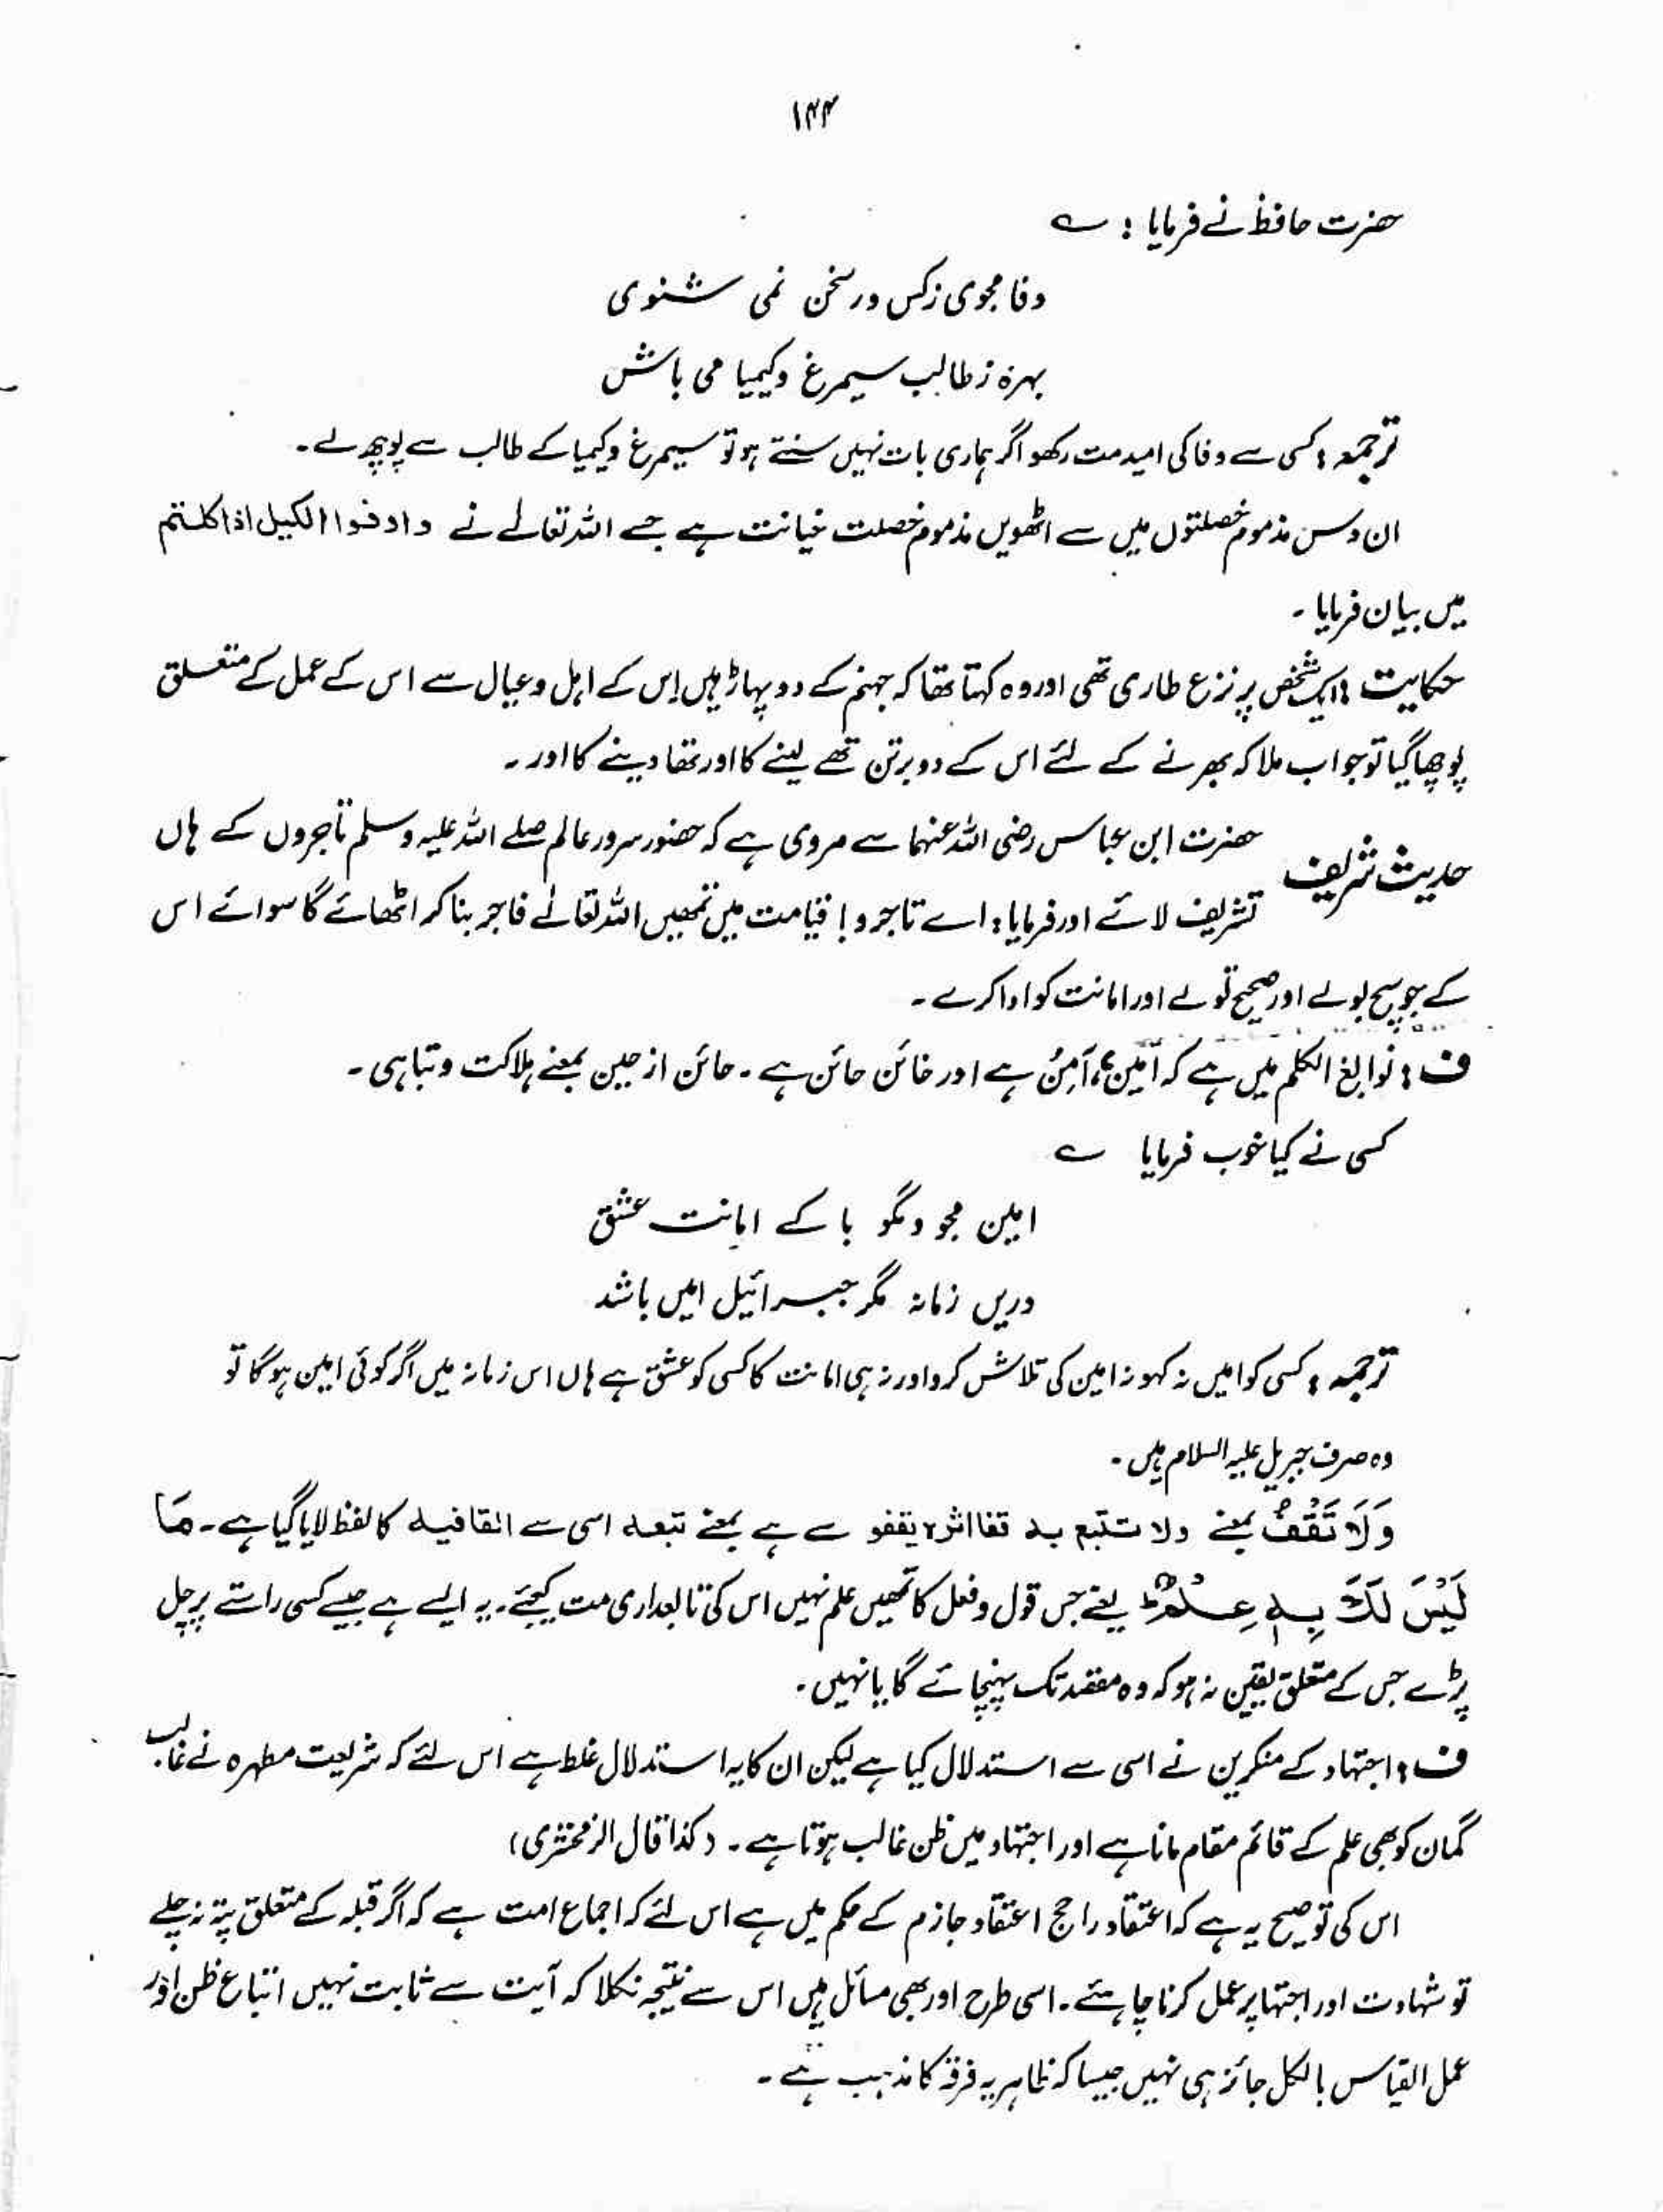 ۱۴۴
حضرت حافظ نے فرمایا : ؎
وفا مجوی زکس ورسخن نمی شنوی
بہرہ ز طالب سیمرغ وکیمیا می باش
ترجمہ : کسی سے وفا کی امید مت رکھو اگر ہماری بات نہیں سنتے ہو تو سیمرغ وکیمیا کے طالب سے پوچھ لے۔
ان دس مذموم خصلتوں میں سے اٹھویں مذموم خصلت خیانت ہے جسے اللہ تعالے نے واوفوا الکیل اذا کلتم
میں بیان فرمایا ۔
حکایت : ایک شخص پر نزع طاری تھی اور وہ کہتا تھا کہ جہنم کے دو پہاڑ ہیں اس کے اہل وعیال سے اس کے عمل کے متعلق
پوچھا گیا تو جواب ملا کہ بھرنے کے لئے اس کے دو برتن تھے لینے کا اور تھا دینے کا اور ۔
حدیث شریف حضرت ابن عباس رضی اللہ عنہما سے مروی ہے کہ حضور سرور عالم صلے اللہ علیہ وسلم تاجروں کے ہاں
تشریف لائے اور فرمایا : اے تاجرو ! قیامت میں تمھیں اللہ تعالٰے فاجر بنا کر اٹھائے گا سوائے اس
کے جو سچ بولے اور صحیح تولے اور امانت کو ادا کرے ۔
ف : نوابغ الکلم میں ہے کہ آمین، آمِنُ ہے اور خائن حائن ہے ۔ حائن از حین بمعنے ہلاکت وتباہی ۔
کسی نے کیا خوب فرمایا ؎
امین مجو ومگو با کسے امانت عشق
دریں زمانہ مگر جبرائیل امیں باشد
ترجمہ : کسی کو امیں نہ کہو نہ امین کی تلاش کرو اور نہ ہی امانت کا کسی کو عشق ہے ہاں اس زمانہ میں اگر کوئی امین ہوگا تو
وہ صرف جبریل علیہ السلام ہیں ۔
وَلَا تَقْفُ بمعنے ولا تتبع یہ قفا اثرہ یقفو سے ہے بمعنے تبعہ اسی سے القافیہ کا لفظ لایا گیا ہے ۔ مَا
لَیْسَ لَکَ بِہٖ عِلْمٌ ؕ یعنے جس قول وفعل کا تمھیں علم نہیں اس کی تابعداری مت کیجئے ۔ یہ ایسے ہے جیسے کسی راستے پر چل
پڑے جس کے متعلق یقین نہ ہو کہ وہ مقصد تک پہنچائے گا یا نہیں ۔
ف : اجتہاد کے منکرین نے اسی سے استدلال کیا ہے لیکن ان کا یہ استدلال غلط ہے اس لئے کہ شریعت مطہرہ نے غالب
گمان کو بھی علم کے قائم مقام مانا ہے اور اجتہاد میں ظن غالب ہوتا ہے ۔ (کذا قال الزمخشری)
اس کی توضیح یہ ہے کہ اعتقاد راجح اعتقاد جازم کے حکم میں ہے اس لئے کہ اجماع امت ہے کہ اگر قبلہ کے متعلق پتہ نہ چلے
تو شہادت اور اجتہاپر عمل کرنا چاہئے ۔ اسی طرح اور بھی مسائل ہیں اس سے نتیجہ نکلا کہ آیت سے ثابت نہیں اتباع ظن اور
عمل القیاس بالکل جائز ہی نہیں جیسا کہ ظاہریہ فرقہ کا مذہب ہے ۔